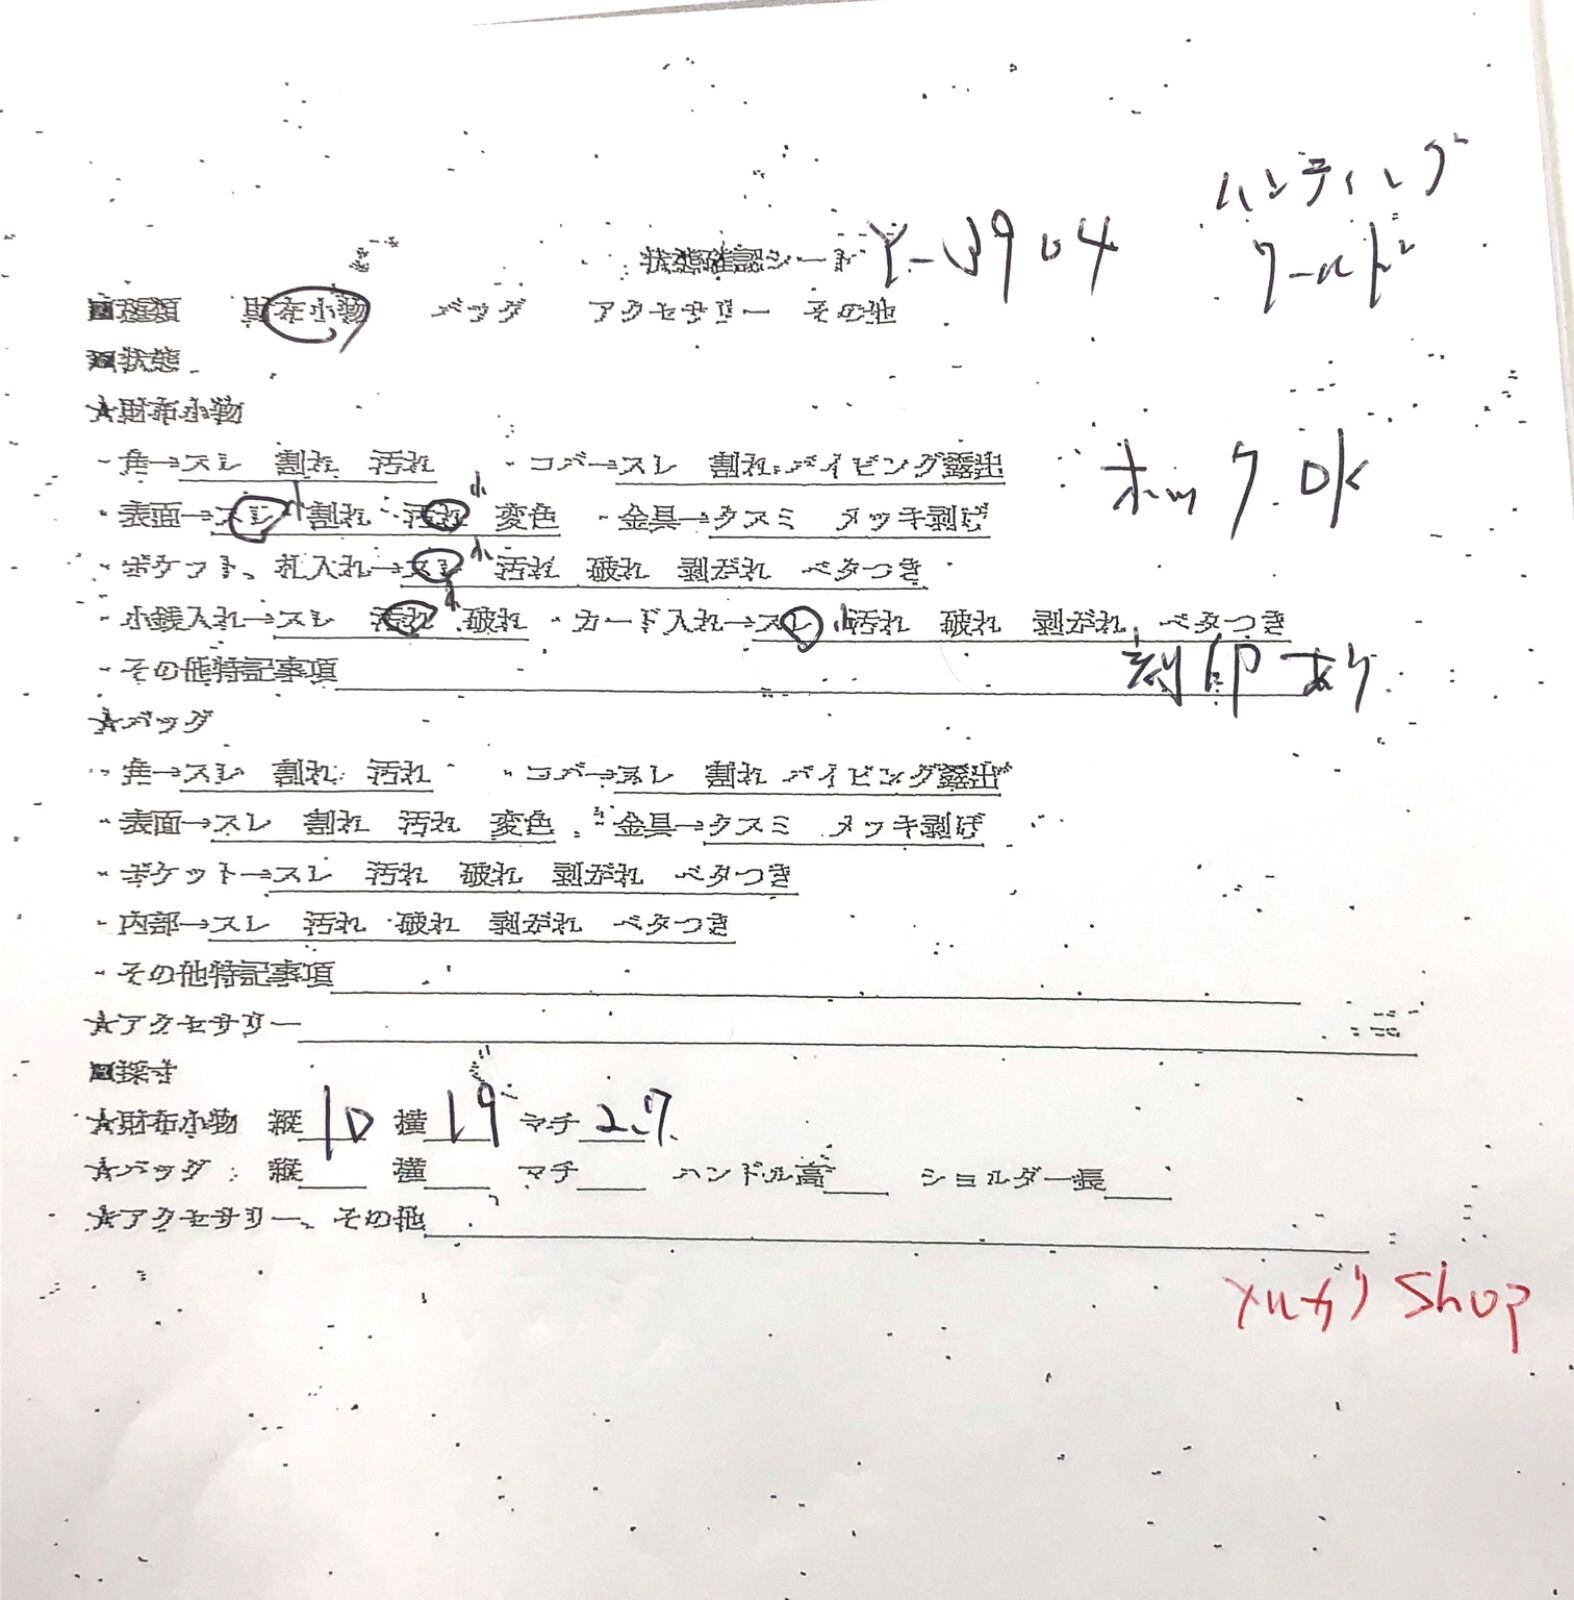 ハンティング
ワールド
状態確認シート Y-3904
■種類 財布小物 バッグ アクセサリー その他
■状態
★財布小物
・角→スレ 割れ 汚れ ・コバ→スレ 割れ パイピング露出
ホック OK
・表面→スレ 小 割れ 汚れ 小 変色 ・金具→クスミ メッキ剥げ
・ポケット、札入れ→スレ 小 汚れ 破れ 剥がれ ベタつき
・小銭入れ→スレ 汚れ 小 破れ ・カード入れ→スレ 小 汚れ 破れ 剥がれ ベタつき
・その他特記事項 刻印あり
★バッグ
・角→スレ 割れ 汚れ ・コバ→スレ 割れ パイピング露出
・表面→スレ 割れ 汚れ 変色 ・金具→クスミ メッキ剥げ
・ポケット→スレ 汚れ 破れ 剥がれ ベタつき
・内部→スレ 汚れ 破れ 剥がれ ベタつき
・その他特記事項
★アクセサリー
■採寸
★財布小物 縦 10 横 19 マチ 2.7
★バッグ 縦 横 マチ ハンドル高 ショルダー長
★アクセサリー、その他
メルカリ Shop